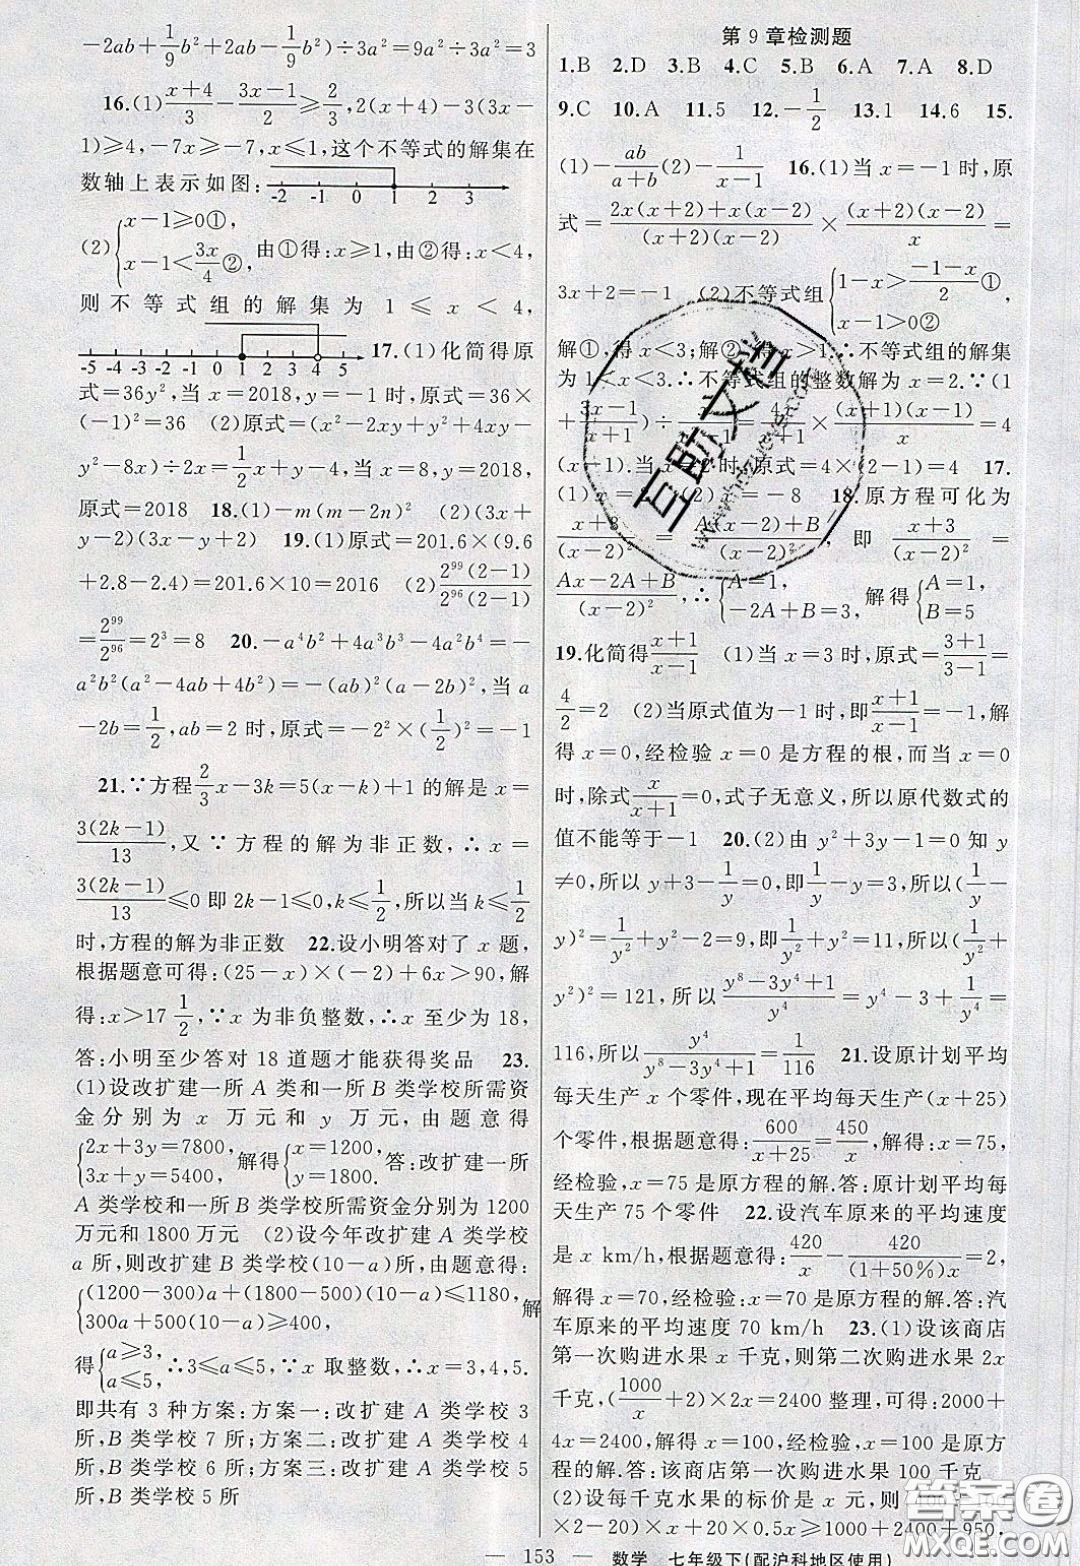 -2ab+1/9b²+2ab-1/9b²)÷3a²=9a²÷3a²=3
16.(1)(x+4)/3-(3x-1)/2≥2/3,2(x+4)-3(3x-
1)≥4,-7x≥-7,x≤1,这个不等式的解集在
数轴上表示如图:
-2 -1 0 1 2 3
(2){x-1≥0①, x-1<3x/4②, 由①得:x≥1,由②得:x<4,
则不等式组的解集为 1≤x<4,
-5 -4 -3 -2 -1 0 1 2 3 4 5
17.(1)化简得原
式=36y²,当 x=2018,y=-1 时,原式=36×
(-1)²=36 (2)原式=(x²-2xy+y²+4xy-
y²-8x)÷2x=1/2x+y-4,当 x=8,y=2018,
原式=2018 18.(1)-m(m-2n)² (2)(3x+
y-2)(3x-y+2) 19.(1)原式=201.6×(9.6
+2.8-2.4)=201.6×10=2016 (2)2⁹⁹(2-1)/2⁹⁶(2-1)
=2⁹⁹/2⁹⁶=2³=8 20.-a⁴b²+4a³b³-4a²b⁴=-
a²b²(a²-4ab+4b²)=-(ab)²(a-2b)²,当 a
-2b=1/2,ab=2 时,原式=-2²×(1/2)²=-1
21.∵方程2/3x-3k=5(x-k)+1 的解是 x=
3(2k-1)/13,又∵方程的解为非正数,∴x=
3(2k-1)/13≤0 即 2k-1≤0,k≤1/2,所以当 k≤1/2
时,方程的解为非正数 22.设小明答对了 x 题,
根据题意可得:(25-x)×(-2)+6x>90,解
得:x>17 1/2,∵x 为非负整数,∴x 至少为 18,
答:小明至少答对 18 道题才能获得奖品 23.
(1)设改扩建一所 A 类和一所 B 类学校所需资
金分别为 x 万元和 y 万元,由题意得
{2x+3y=7800, 3x+y=5400, 解得{x=1200, y=1800. 答:改扩建一所
A 类学校和一所 B 类学校所需资金分别为 1200
万元和 1800 万元 (2)设今年改扩建 A 类学校
a 所,则改扩建 B 类学校(10-a)所,由题意得:
{(1200-300)a+(1800-500)(10-a)≤1180, 300a+500(10-a)≥400, 解
得{a≥3, a≤5, ∴3≤a≤5,∵x 取整数,∴x=3,4,5.
即共有 3 种方案:方案一:改扩建 A 类学校 3
所,B 类学校 7 所;方案二:改扩建 A 类学校 4
所,B 类学校 6 所;方案三:改扩建 A 类学校 5
所,B 类学校 5 所
第 9 章检测题
1.B 2.D 3.B 4.C 5.B 6.A 7.A 8.D
9.C 10.A 11.5 12.-1/2 13.1 14.6 15.
(1)-ab/(a+b)(2)-1/(x-1) 16.(1)当 x=-1 时,原
式=(2x(x+2)+x(x-2))/((x+2)(x-2))×((x+2)(x-2))/x=
3x+2=-1 (2)不等式组{1-x>(-1-x)/2①, x-1>0②
解①,得 x<3;解②,得 x>1.∴不等式组的解集
为 1<x<3.∴不等式组的整数解为 x=2.∵(1
+(3x-1)/(x+1))÷ = 4x/(x+1)×((x+1)(x-1))/x=4
(x-1).当 x=2 时,原式=4×(2-1)=4 17.
(1)x= (2)x=-8 18.原方程可化为
(x+3)/(x-2)²=(A(x-2)+B)/(x-2)²,即(x+3)/(x-2)²=
(Ax-2A+B)/(x-2)²,∴{A=1, -2A+B=3, 解得{A=1, B=5
19.化简得(x+1)/(x-1) (1)当 x=3 时,原式=(3+1)/(3-1)=
4/2=2 (2)当原式值为-1 时,即(x+1)/(x-1)=-1,解
得 x=0,经检验 x=0 是方程的根,而当 x=0
时,除式x/(x+1)=0,式子无意义,所以原代数式的
值不能等于-1 20.(2)由 y²+3y-1=0 知 y
≠0,所以 y+3-1/y=0,即1/y-y=3,所以(1/y-
y)²=1/y²+y²-2=9,即1/y²+y²=11,所以(1/y²+
y²)²=121,所以(y⁸-3y⁴+1)/y⁴=y⁴-3+1/y⁴=
116,所以y⁴/(y⁸-3y⁴+1)=1/116 21.设原计划平均
每天生产 x 个零件,现在平均每天生产(x+25)
个零件,根据题意得:600/(x+25)=450/x,解得:x=75,
经检验,x=75 是原方程的解.答:原计划平均每
天生产 75 个零件 22.设汽车原来的平均速度
是 x km/h,根据题意得:420/x-420/((1+50%)x)=2,
解得 x=70,经检验:x=70 是原方程的解.答:汽
车原来的平均速度 70 km/h 23.(1)设该商店
第一次购进水果 x 千克,则第二次购进水果 2x
千克,(1000/x+2)×2x=2400 整理,可得:2000+
4x=2400,解得 x=100,经检验,x=100 是原方
程的解.答:该商店第一次购进水果 100 千克
(2)设每千克水果的标价是 x 元,则
×2-20)×x+20×0.5x≥1000+2400+
— 153 — 数学 七年级下(配沪科地区使用)
互助文档
答案卷